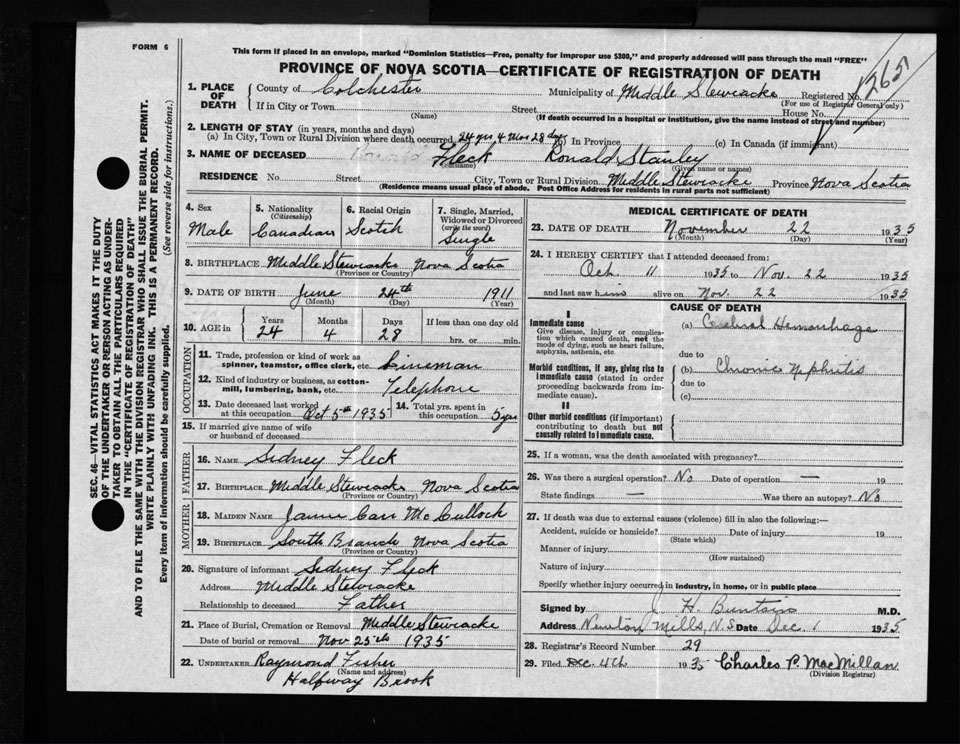 FORM 6
This form if placed in an envelope, marked "Dominion Statistics—Free, penalty for improper use $300," and properly addressed will pass through the mail "FREE"
PROVINCE OF NOVA SCOTIA—CERTIFICATE OF REGISTRATION OF DEATH
1265
1. PLACE OF DEATH
County of Colchester Municipality of Middle Stewiacke Registered No.
(For use of Registrar General only)
If in City or Town Street House No.
(Name) (If death occurred in a hospital or institution, give the name instead of street and number)
2. LENGTH OF STAY (in years, months and days)
(a) In City, Town or Rural Division where death occurred 24 yrs 4 mos 28 days (b) In Province (c) In Canada (if immigrant)
3. NAME OF DECEASED Fleck Ronald Stanley
(Surname) (Given name or names)
RESIDENCE No. Street City, Town or Rural Division Middle Stewiacke Province Nova Scotia
(Residence means usual place of abode. Post Office Address for residents in rural parts not sufficient)
4. Sex Male
5. Nationality (Citizenship) Canadian
6. Racial Origin Scotch
7. Single, Married, Widowed or Divorced (write the word) Single
8. BIRTHPLACE Middle Stewiacke Nova Scotia
(Province or Country)
9. DATE OF BIRTH June 24th 1911
(Month) (Day) (Year)
10. AGE in Years 24 Months 4 Days 28 If less than one day old hrs. or min.
OCCUPATION
11. Trade, profession or kind of work as spinner, teamster, office clerk, etc. Lineman
12. Kind of industry or business, as cotton-mill, lumbering, bank, etc. Telephone
13. Date deceased last worked at this occupation Oct 5th 1935 14. Total yrs. spent in this occupation 5 yrs
15. If married give name of wife or husband of deceased
FATHER
16. NAME Sidney Fleck
17. BIRTHPLACE Middle Stewiacke Nova Scotia
(Province or Country)
MOTHER
18. MAIDEN NAME Carr McCullock
19. BIRTHPLACE South Branch Nova Scotia
(Province or Country)
20. Signature of informant Sidney Fleck
Address Middle Stewiacke
Relationship to deceased Father
21. Place of Burial, Cremation or Removal Middle Stewiacke
Date of burial or removal Nov 25th 1935
22. UNDERTAKER Raymond Fisher
(Name and address)
Halfway Brook
MEDICAL CERTIFICATE OF DEATH
23. DATE OF DEATH November 22 1935
(Month) (Day) (Year)
24. I HEREBY CERTIFY that I attended deceased from:
Oct. 11 1935 to Nov. 22 1935
and last saw him alive on Nov. 22 1935
CAUSE OF DEATH
I
Immediate cause
Give disease, injury or complication which caused death, not the mode of dying, such as heart failure, asphyxia, asthenia, etc.
(a) Cerebral Hemorrhage
due to
Morbid conditions, if any, giving rise to immediate cause (stated in order proceeding backwards from immediate cause).
(b) Chronic Nephritis
due to
(c)
II
Other morbid conditions (if important) contributing to death but not causally related to immediate cause.
25. If a woman, was the death associated with pregnancy?
26. Was there a surgical operation? No Date of operation — 19
State findings — Was there an autopsy? No
27. If death was due to external causes (violence) fill in also the following:—
Accident, suicide or homicide? Date of injury 19
(State which)
Manner of injury
(How sustained)
Nature of injury
Specify whether injury occurred in industry, in home, or in public place
Signed by J. H. Buntain M.D.
Address Newton Mills, N.S. Date Dec. 1 1935
28. Registrar's Record Number 29
29. Filed Dec 4th 1935 Charles P. MacMillan
(Division Registrar)
SEC. 46—VITAL STATISTICS ACT MAKES IT THE DUTY
OF THE UNDERTAKER OR PERSON ACTING AS UNDER-
TAKER TO OBTAIN ALL THE PARTICULARS REQUIRED
IN THE "CERTIFICATE OF REGISTRATION OF DEATH"
AND TO FILE THE SAME WITH THE DIVISION REGISTRAR WHO SHALL ISSUE THE BURIAL PERMIT.
WRITE PLAINLY WITH UNFADING INK. THIS IS A PERMANENT RECORD.
Every item of information should be carefully supplied. (See reverse side for instructions.)